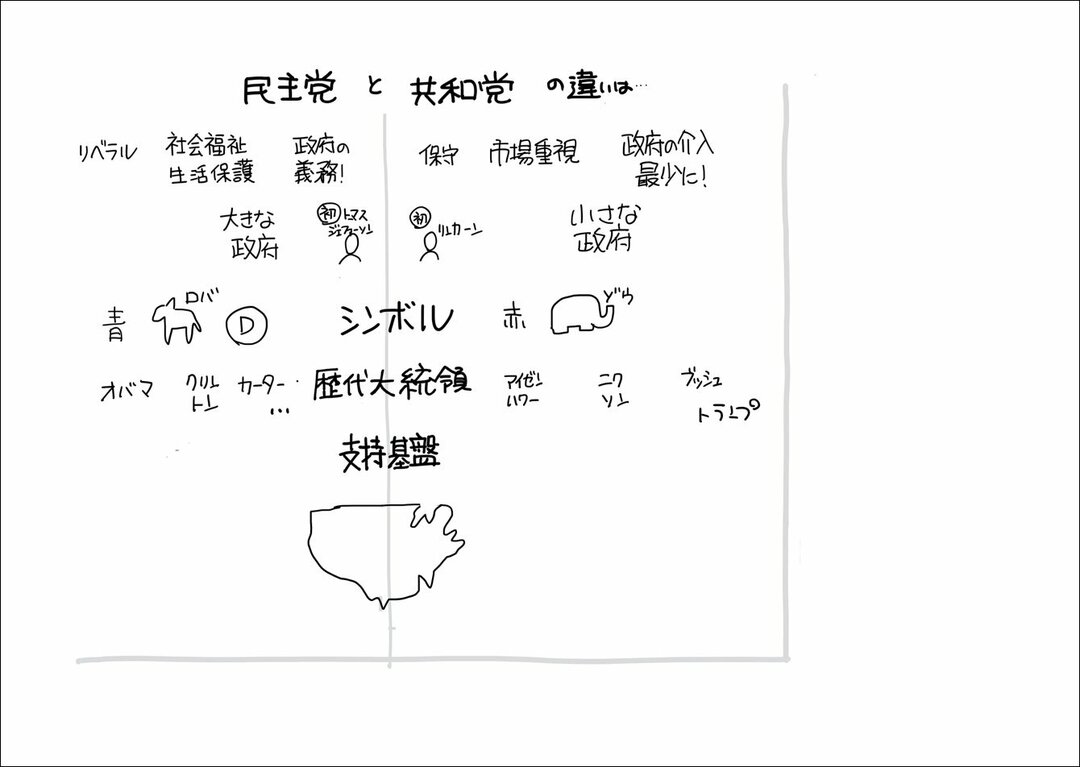 民主党 と 共和党 の違いは…
リベラル
社会福祉
生活保護
政府の
義務!
保守
市場重視
政府の介入
最少に!
大きな
政府
初 トマス
ジェファーソン
初
リンカーン
小さな
政府
青
ロバ
D
シンボル
赤
ぞう
オバマ
クリン
トン
カーター…
歴代大統領
アイゼン
ハワー
ニク
ソン
ブッシュ
トランプ
支持基盤